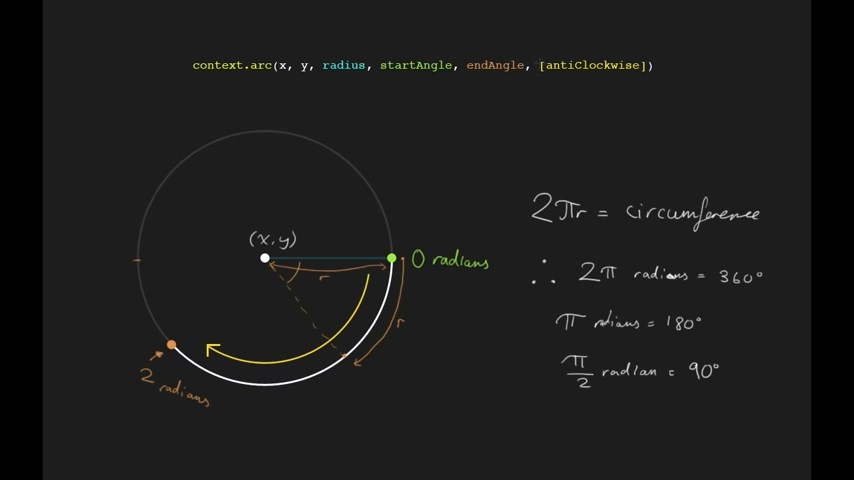 context.arc(x, y, radius, startAngle, endAngle, [antiClockwise])
(x,y)
0 radians
r
r
2 radians
2πr = circumference
∴ 2π radians = 360°
π rdians = 180°
π/2 radian = 90°